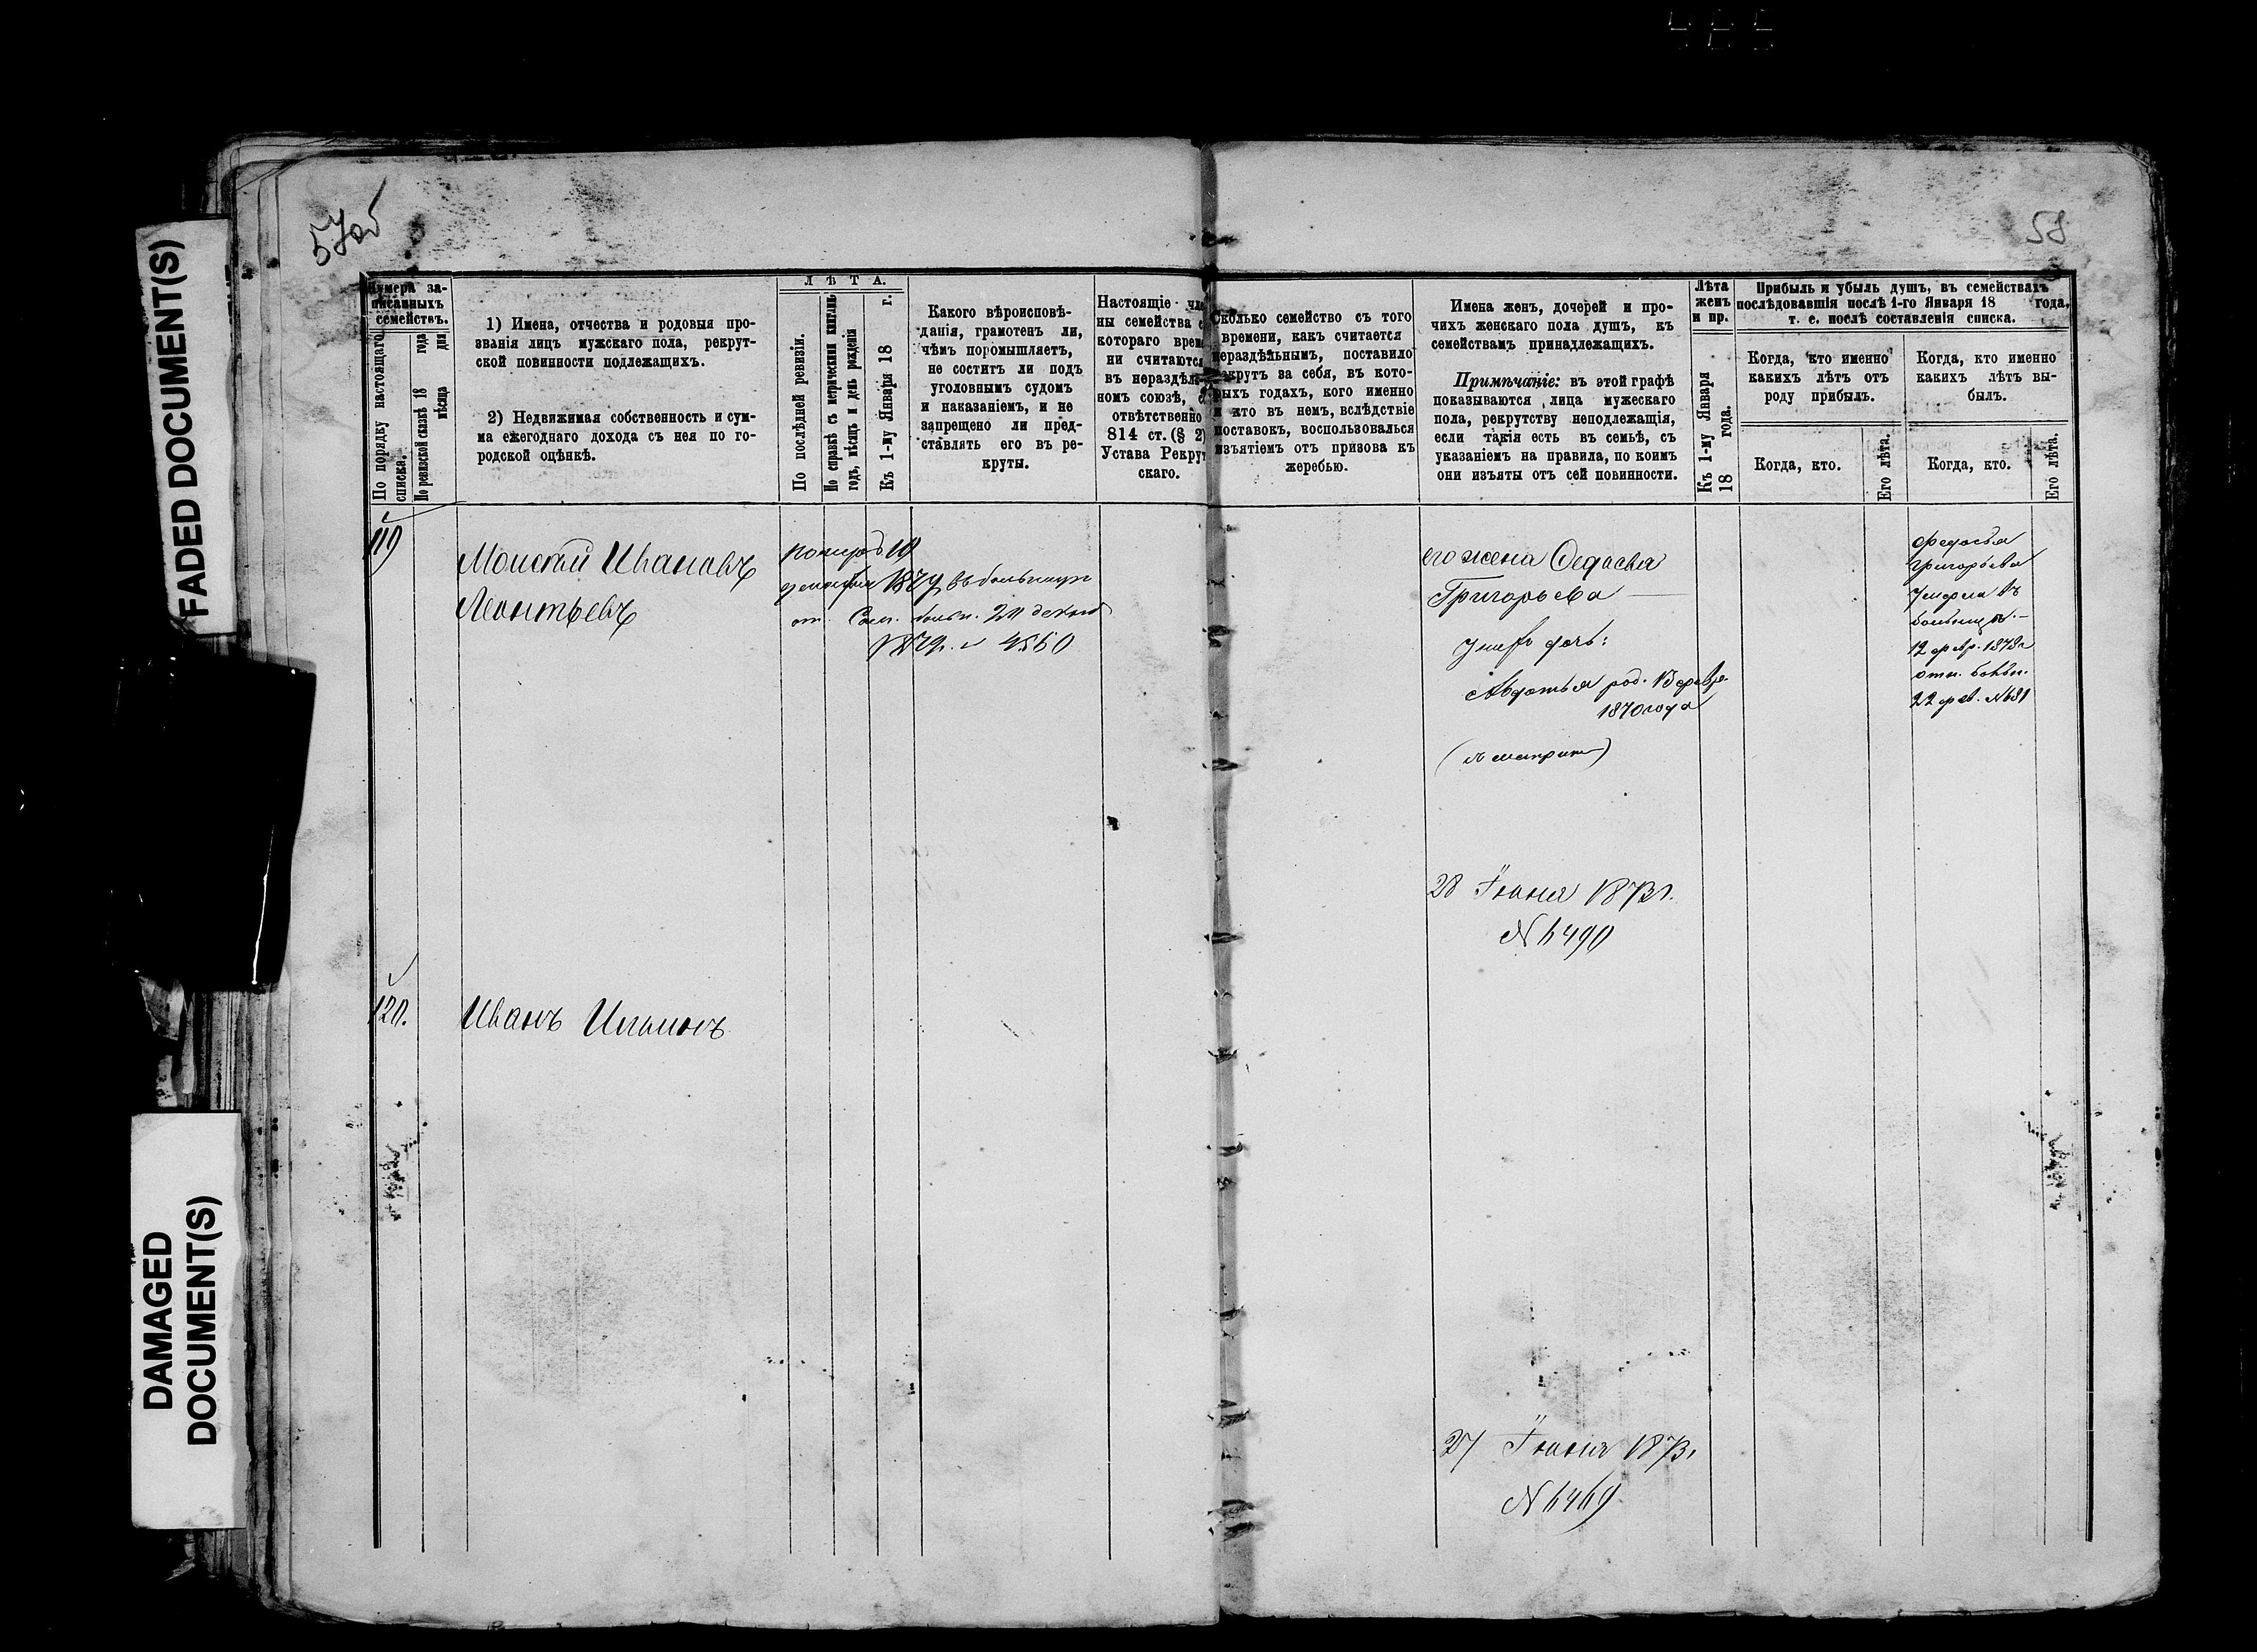 57об
58
FADED DOCUMENT(S)
DAMAGED
DOCUMENT(S)
Нумера за-
писанныхъ
семействъ.
По порядку настоящаго
списка.
По ревизской сказкѣ 18 года
мѣсяца дня
1) Имена, отчества и родовыя про-
званія лицъ мужскаго пола, рекрут-
ской повинности подлежащихъ.
2) Недвижимая собственность и сум-
ма ежегоднаго дохода съ нея по го-
родской оцѣнкѣ.
ЛѢТА.
По послѣдней ревизіи.
По справкѣ съ метрическими книгами
годъ, мѣсяцъ и день рожденія
Къ 1-му Января 18 г.
Какого вѣроисповѣ-
данія, грамотенъ ли,
чѣмъ поромышляетъ,
не соститъ ли подъ
уголовнымъ судомъ
и наказаніемъ, и не
запрещено ли пред-
ставлять его въ ре-
круты.
Настоящіе чле
ны семейства с
котораго врем
ни считаются
въ нераздѣль
номъ союзѣ, с
отвѣтственно
814 ст. (§ 2)
Устава Рекру
скаго.
Сколько семейство съ того
времени, какъ считается
нераздѣльнымъ, поставило
рекрутъ за себя, въ кото-
рыхъ годахъ, кого именно
и кто въ немъ, вслѣдствіе
поставокъ, воспользовался
изъятіемъ отъ призова къ
жеребью.
Имена женъ, дочерей и про-
чихъ женскаго пола душъ, къ
семействамъ принадлежащихъ.
Примѣчаніе: въ этой графѣ
показываются лица мужескаго
пола, рекрутству неподлежащія,
если такія есть въ семьѣ, съ
указаніемъ на правила, по коимъ
они изъяты отъ сей повинности.
Лѣта
женъ
и пр.
Къ 1-му Января
18 года.
Прибыль и убыль душъ, въ семействахъ
послѣдовавшія послѣ 1-го Января 18 года,
т. е. послѣ составленія списка.
Когда, кто именно
какихъ лѣтъ отъ
роду прибылъ.
Когда, кто.
Его лѣта.
Когда, кто именно
какихъ лѣтъ вы-
былъ.
Когда, кто.
Его лѣта.
119
Моисей Ивановъ
Леонтьевъ
въ больницѣ
4550
его жена Федосья
Григорьева
дочь:
Авдотья род. февр.
1870 года
28 Іюня 1873 г.
N 6490
Федосья
Григорьева
умерла въ
больницѣ.—
12 февр. 1878 г
отн. больн.
22 фев. N 681
120.
Иванъ Ильинъ
27 Іюня 1873 г
N 6469